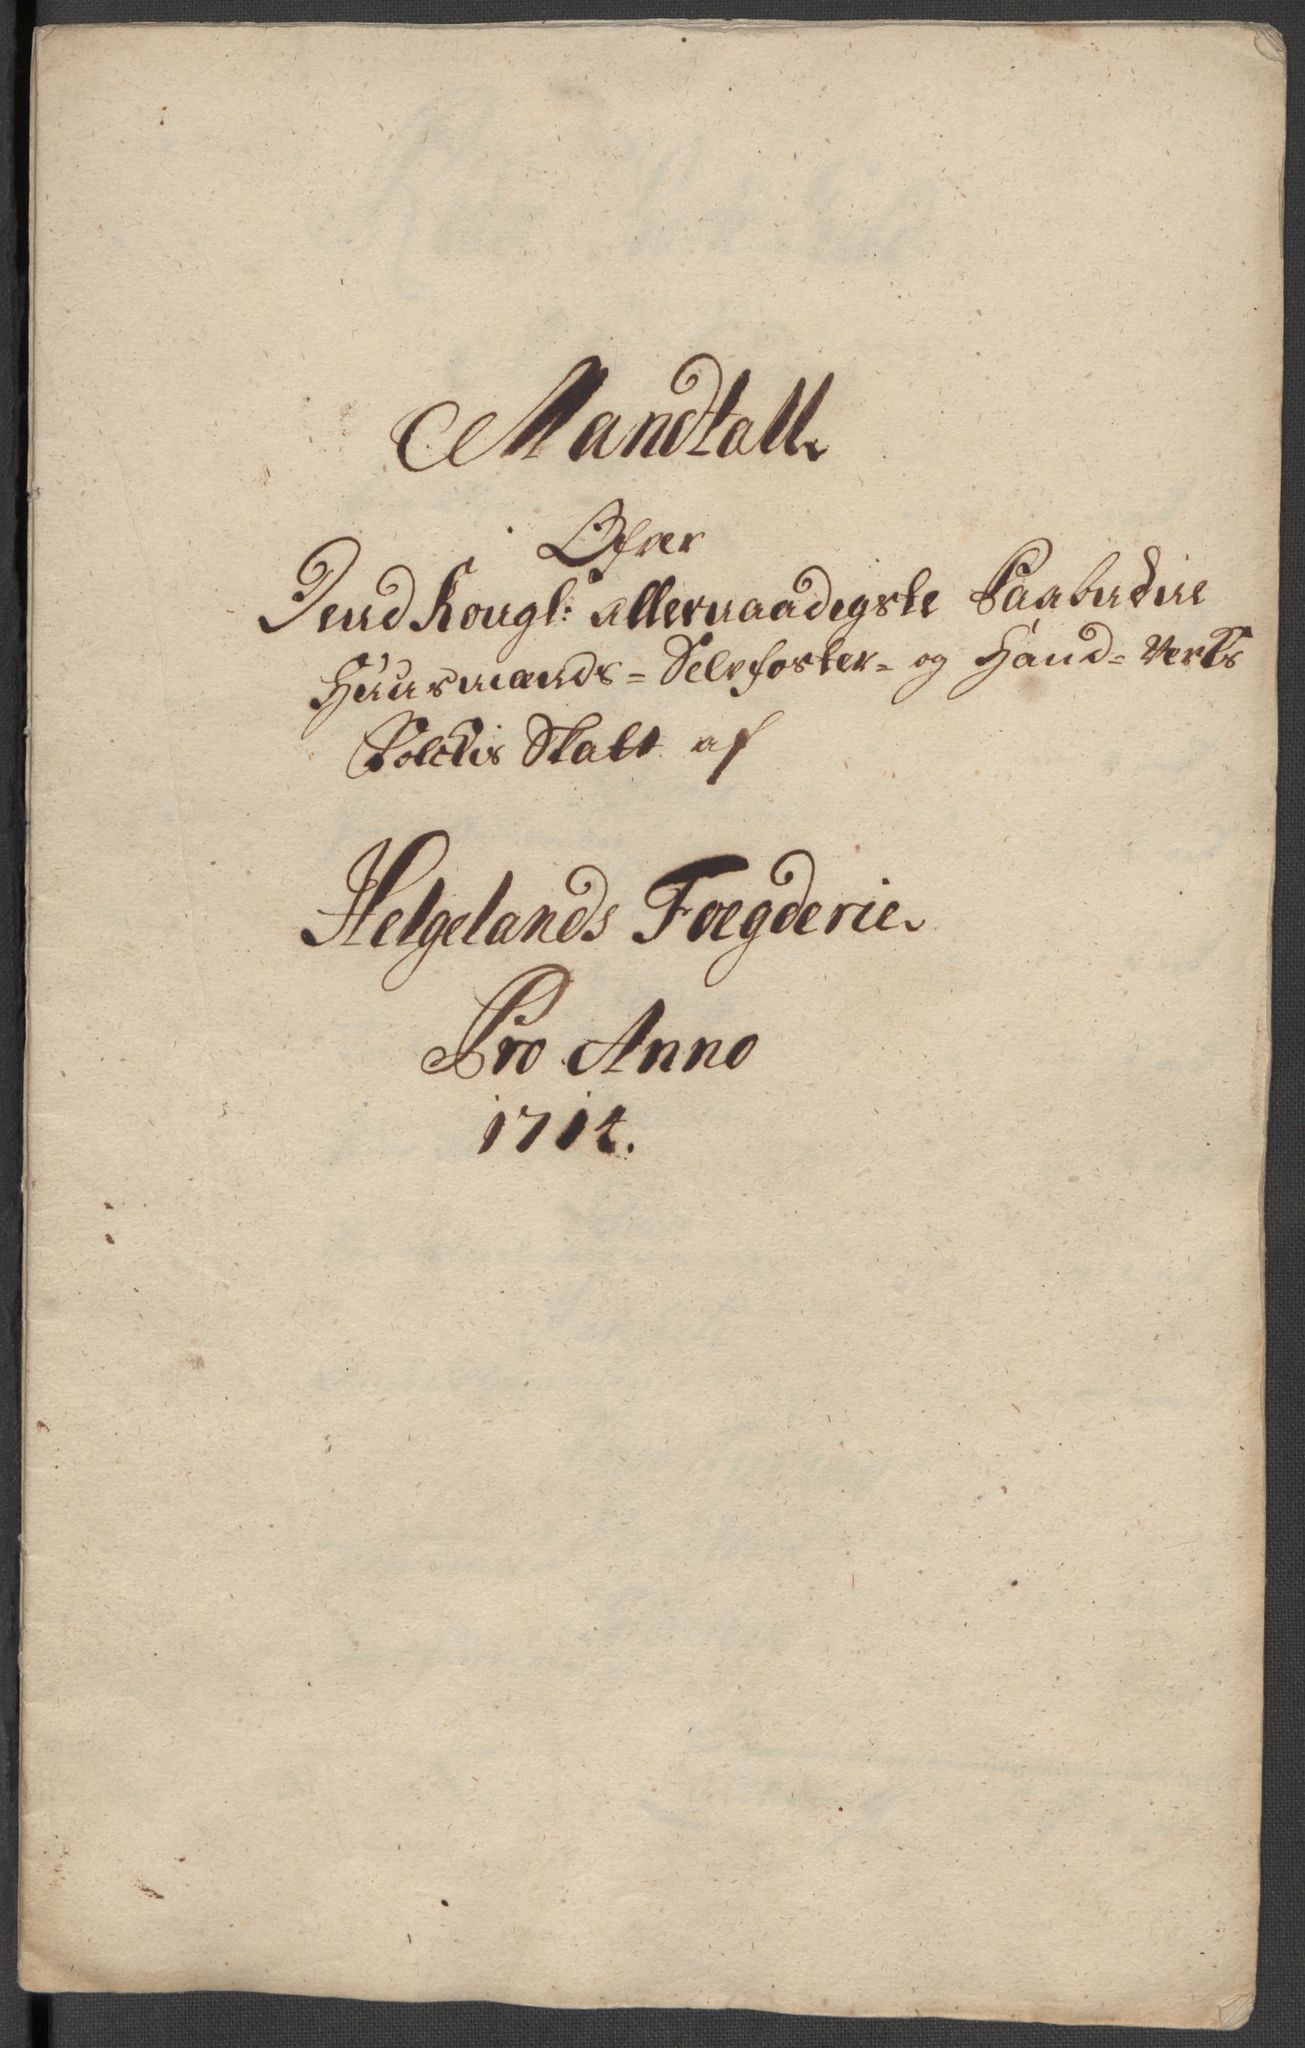 Mandtall
Ofver
Dend Kongl: allernaadigste Paabudne
Huusmænds= Selvfoster= og Haand= Verks
Folckis Skatt af
Helgelands Foegderie
Pro Anno
1714.